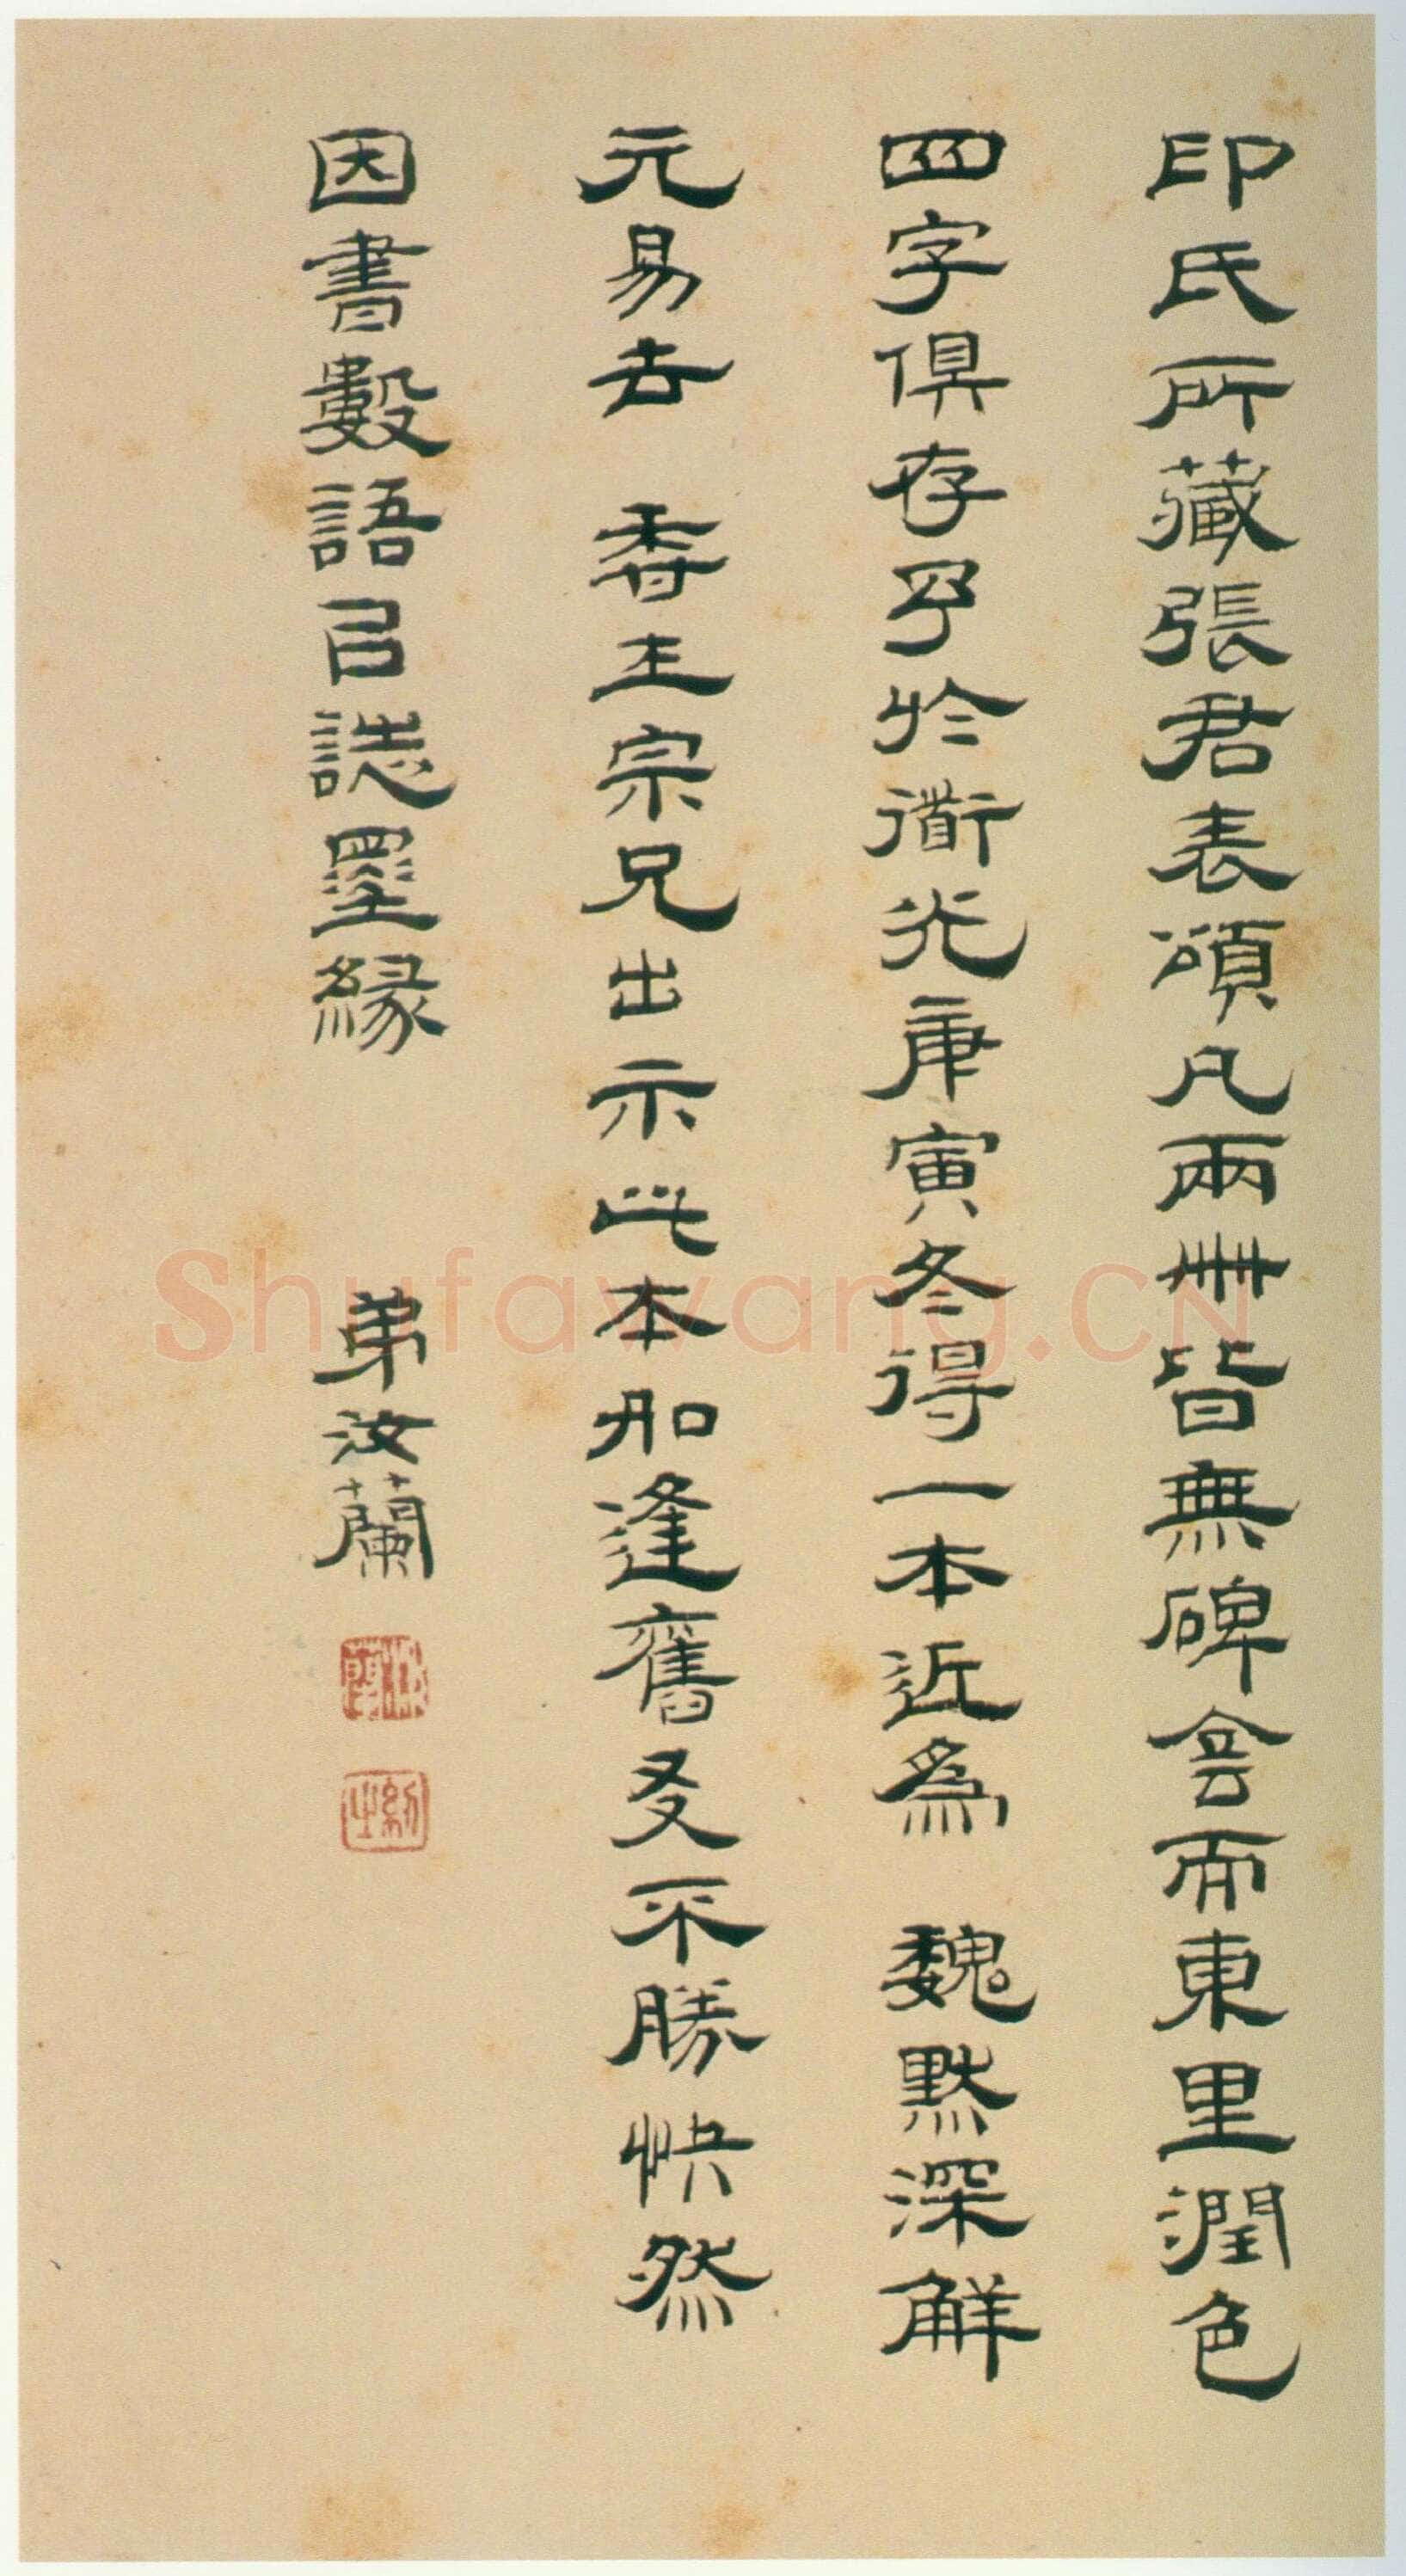 印氏所藏張君表頌凡兩冊皆無碑侌而東里潤色
四字俱存予於衜光庚寅冬得一本近為 魏默深解
元易去 香宗兄出示此本如逢舊友不勝快然
因書數語㠯誌墨緣 弟汝蘭
汝蘭
紉之
Shufawang.CN